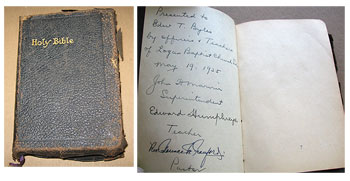 Holy Bible
Presented to
Edw. T. Byles
by officers & Teachers
of Logan Baptist Church
May 19, 1925
John
Superintendent
Edward Humphreys
Teacher
Rev.
Pastor